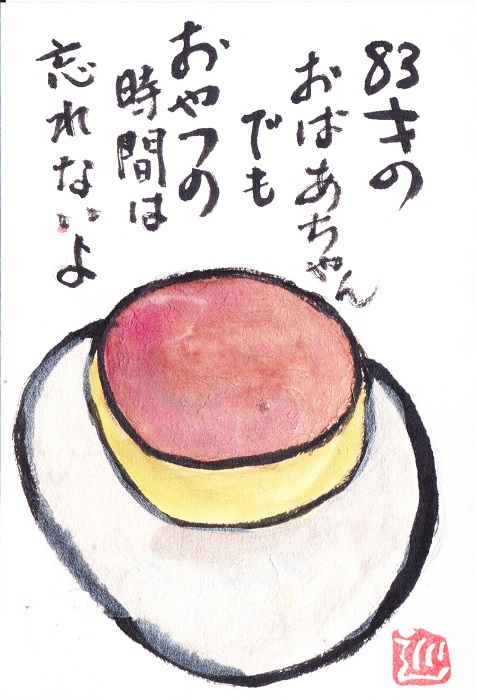 83才の
おばあちゃん
でも
おやつの
時間は
忘れないよ